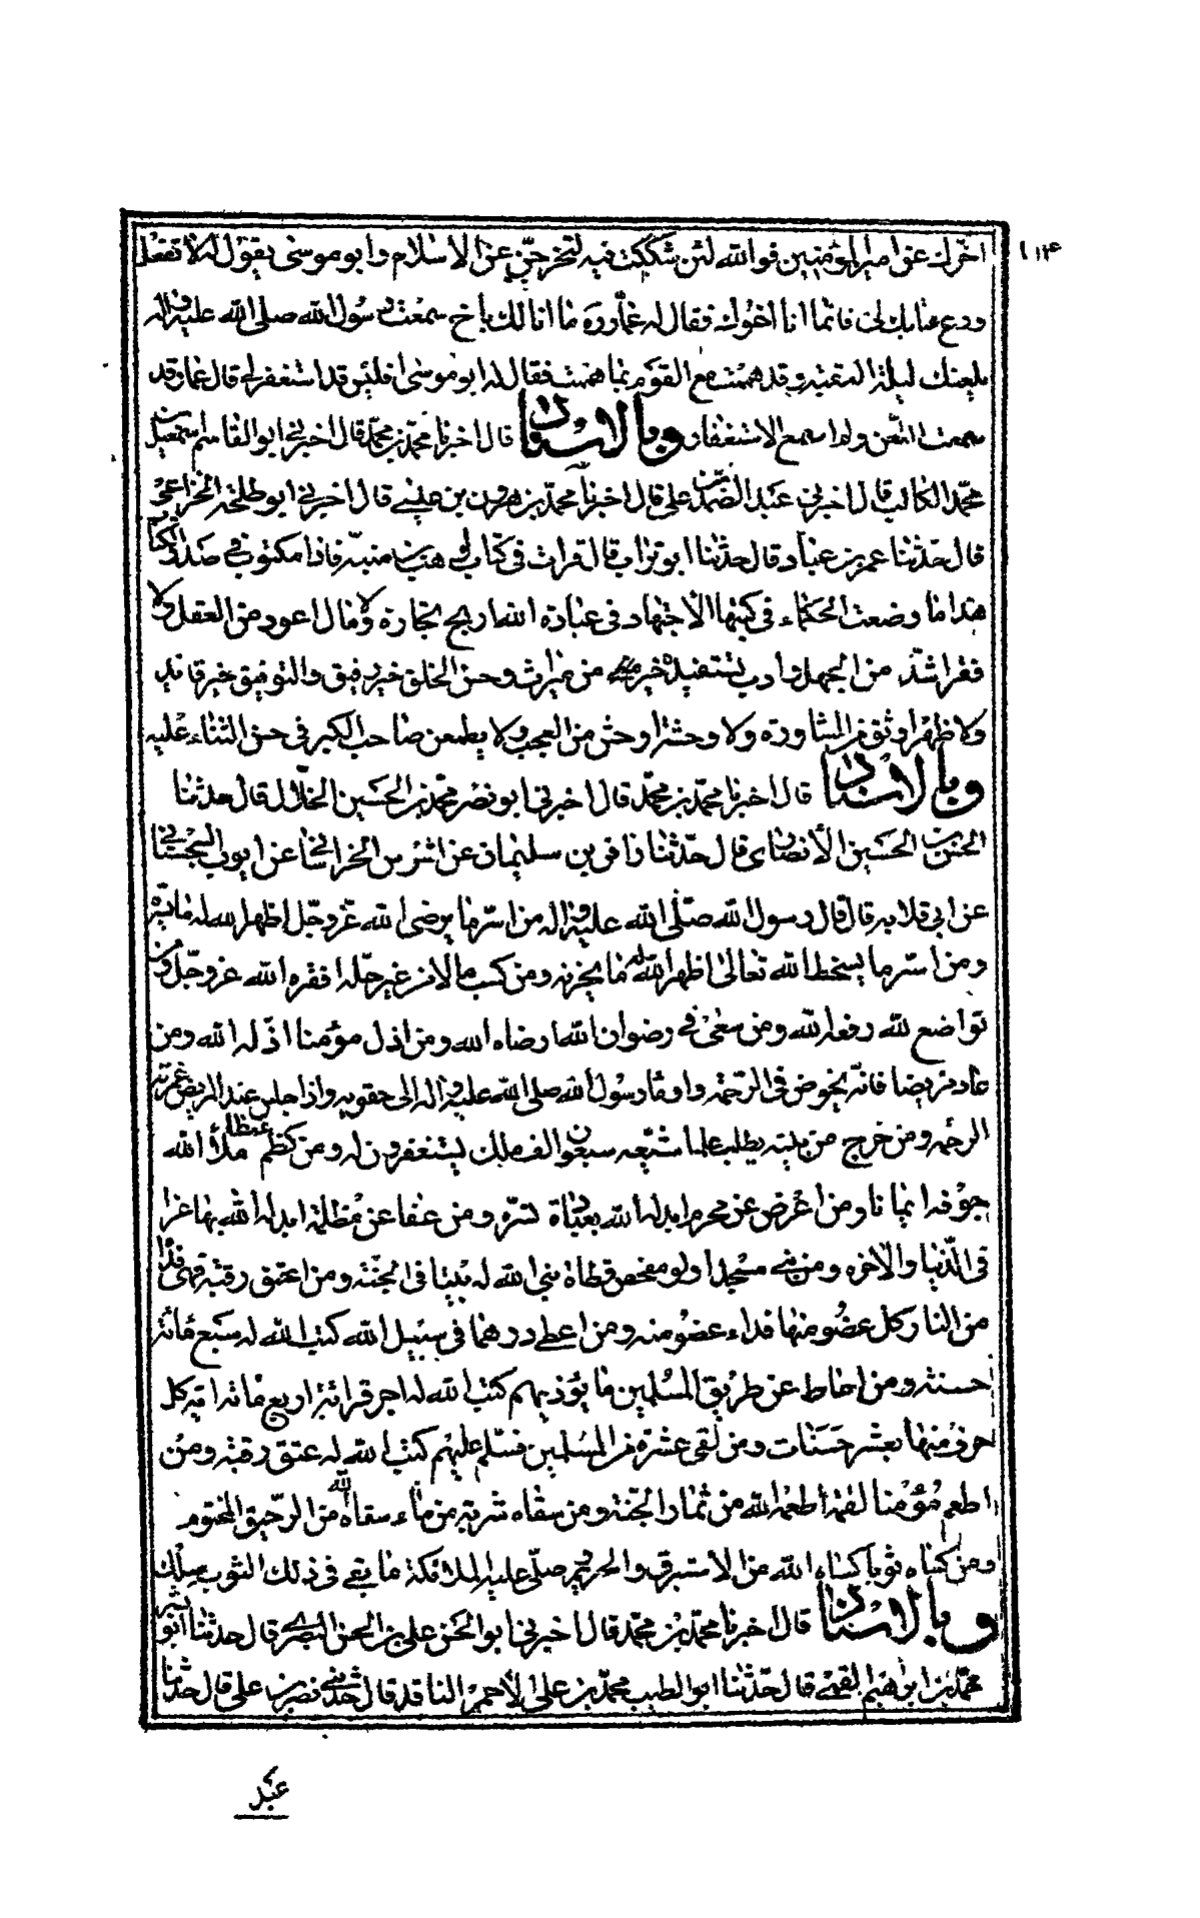 ١١٣
اخرك عن امير المؤمنين فوالله لئن شككت فيه لتخرجن عن الاسلام وابو موسى يقول له لا تفعل
ودع عتابك لى فانما انا اخوك فقال له عمار ره ما انا لك باخ سمعت رسول الله صلى الله عليه واله
يلعنك ليلة العقبة وقد هممت مع القوم بما هممت فقال له ابو موسى افليس قد استغفر لى قال عمار قد
سمعت اللعن ولم اسمع الاستغفار وبالاسناد قال اخبرنا محمد بن محمد قال اخبرنى ابو القاسم اسمعيل بن
محمد الكاتب قال اخبرنى عبد الصمد بن على قال اخبرنا محمد بن هرون بن عيسى قال اخبرنى ابو طلحة الخزاعى
قال حدثنا عمر بن عباد قال حدثنا ابو تراب قال قرات فى كتاب لوهب بن منبه فاذا مكتوب فى صدر الكتاب
هذا ما وضعت الحكماء فى كتبها الاجتهاد فى عبادة الله اربح تجارة ولا مال اعود من العقل ولا
فقر اشد من الجهل وادب تستفيده خير من ميراث وحسن الخلق خير رفيق والتوفيق خير قائد
ولا ظهر اوثق من المشاورة ولا وحشة اوحش من العجب ولا يطمعن صاحب الكبر فى حسن الثناء عليه
وبالاسناد قال اخبرنا محمد بن محمد قال اخبرنى ابو نصر محمد بن الحسين الخلال قال حدثنا
الحسن بن الحسين الانصارى قال حدثنا زافر بن سليمان عن اشرس الخراسانى عن ايوب السجستانى
عن ابى قلابه قال قال رسول الله صلى الله عليه واله من اسر ما يرضى الله عز وجل اظهر الله له ما يسره
ومن اسر ما يسخط الله تعالى اظهر الله له ما يحزنه ومن كسب مالا من غير حله افقره الله عز وجل ومن
تواضع لله رفعه الله ومن سعى فى رضوان الله ارضاه الله ومن اذل مؤمنا اذله الله ومن
عاد مريضا فانه يخوض فى الرحمة واومأ رسول الله صلى الله عليه واله الى حقويه واذا جلس عند المريض غمرته
الرحمه ومن خرج من بيته يطلب علما شيعه سبعون الف ملك يستغفرون له ومن كظم غيظا ملأ الله
جوفه ايمانا ومن اعرض عن محرم ابدله الله بعبادة تسره ومن عفا عن مظلمة ابدله الله بها عزا
فى الدنيا والاخره ومن بنى مسجدا ولو مفحص قطاة بنى الله له بيتا فى الجنة ومن اعتق رقبة فهى فداء
من النار كل عضو منها فداء عضو منه ومن اعطى درهما فى سبيل الله كتب الله له سبع مائة
حسنة ومن اماط عن طريق المسلمين ما يؤذيهم كتب الله له اجر قرائة اربع مائة اية كل
حرف منها بعشر حسنات ومن لقى عشرة من المسلمين فسلم عليهم كتب الله له عتق رقبة ومن
اطعم مؤمنا لقمة اطعمه الله من ثمار الجنة ومن سقاه شربة من ماء سقاه الله من الرحيق المختوم
ومن كساه ثوبا كساه الله من الاستبرق والحرير وصلى عليه الملائكة ما بقى فى ذلك الثوب سلك
وبالاسناد قال اخبرنا محمد بن محمد قال اخبرنى ابو الحسن على بن الحسن البصرى قال حدثنا ابو بشر
محمد بن ابراهيم القمى قال حدثنا ابو الطيب محمد بن على الاحمر الناقد قال حدثنى نصر بن على قال حدثنا
عبد